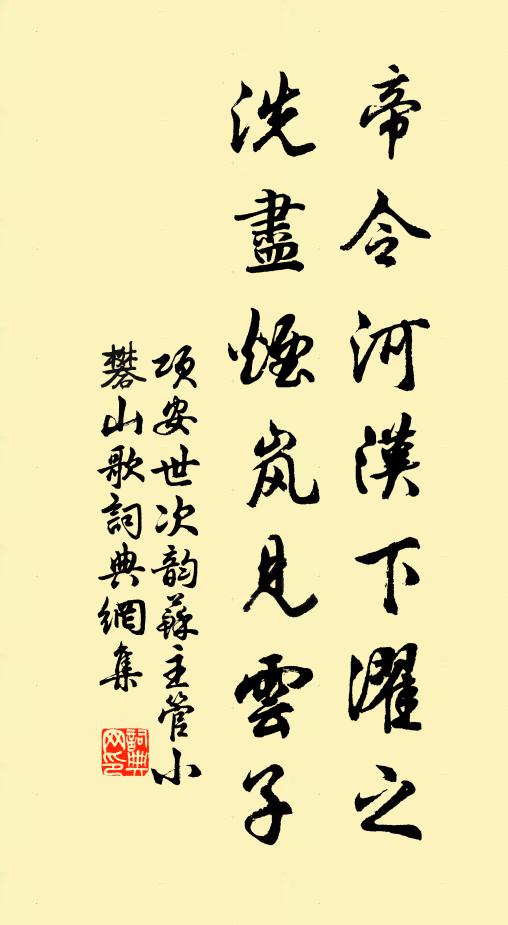 帝令河漢下濯之
洗盡煙岚見雲子
項安世次韵蘇主管小
礬山歌詞典網集
詞典
网印